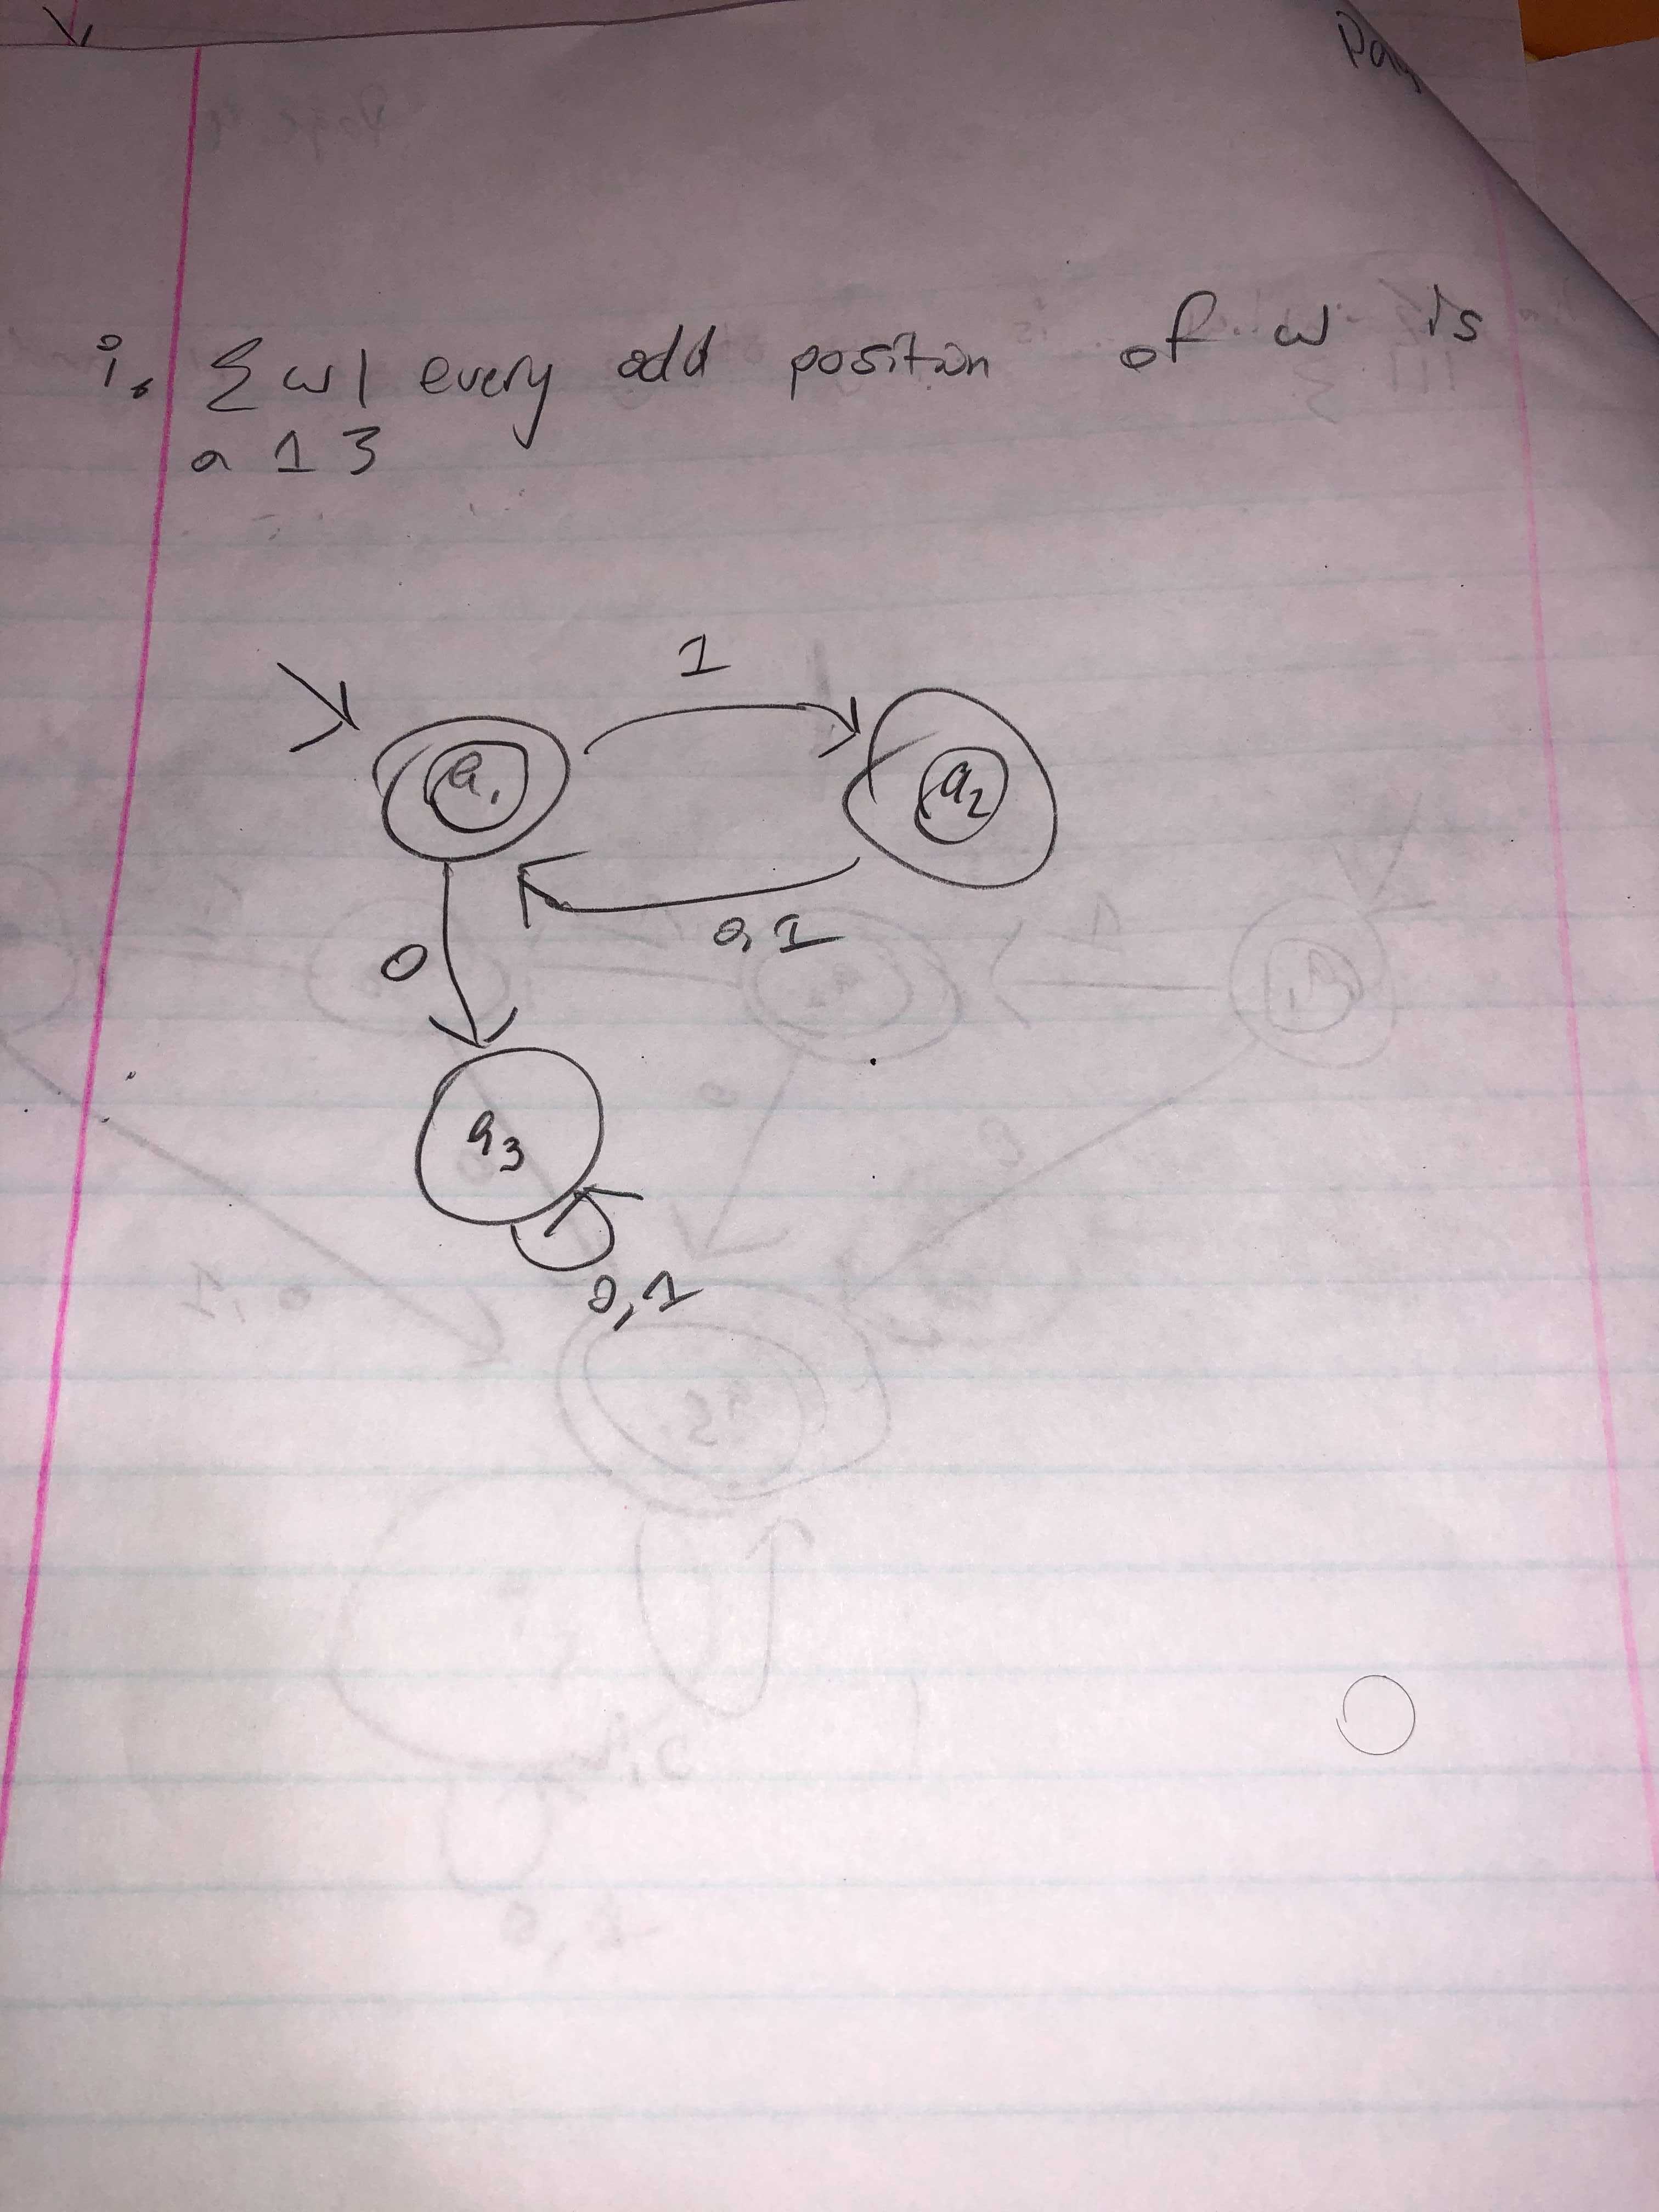 Pag
i. {w| every odd position of w is
a 1}
1
q1
q2
0,1
0
q3
0,1